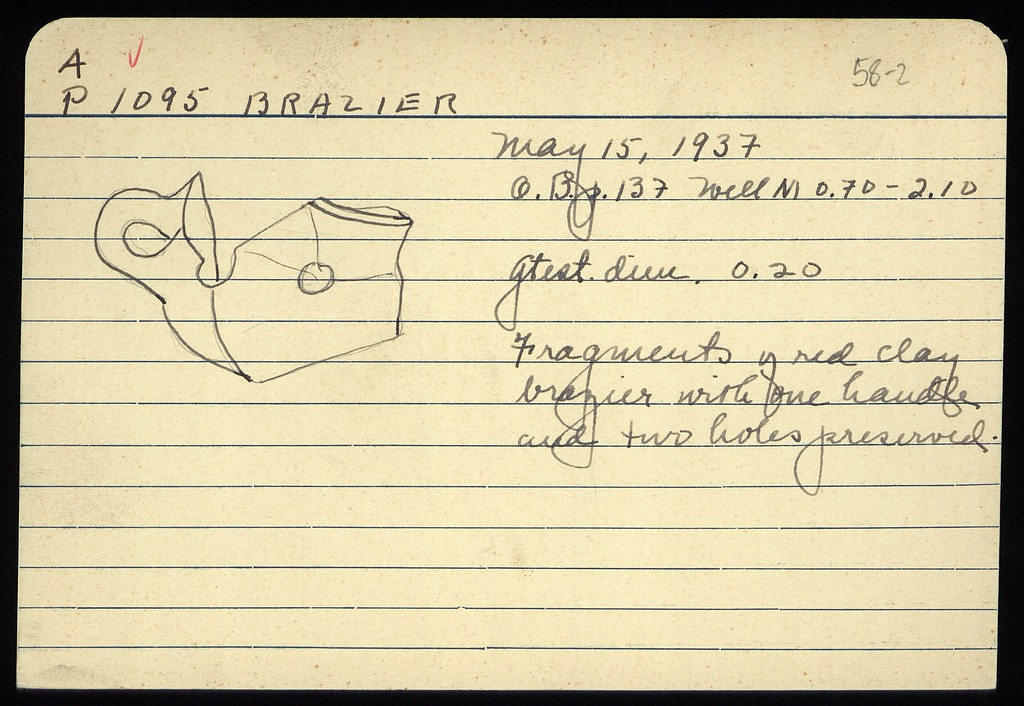 A
58-2
P 1095 BRAZIER
May 15, 1937
O.B. p. 137 Well M 0.70 - 2.10
Gtest. dim. 0.20
Fragments of red clay
brazier with one handle
and two holes preserved.